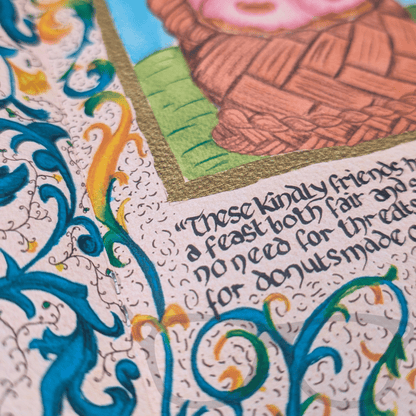 "These kindly friends
a feast both fair and
no need for threats
for donuts made